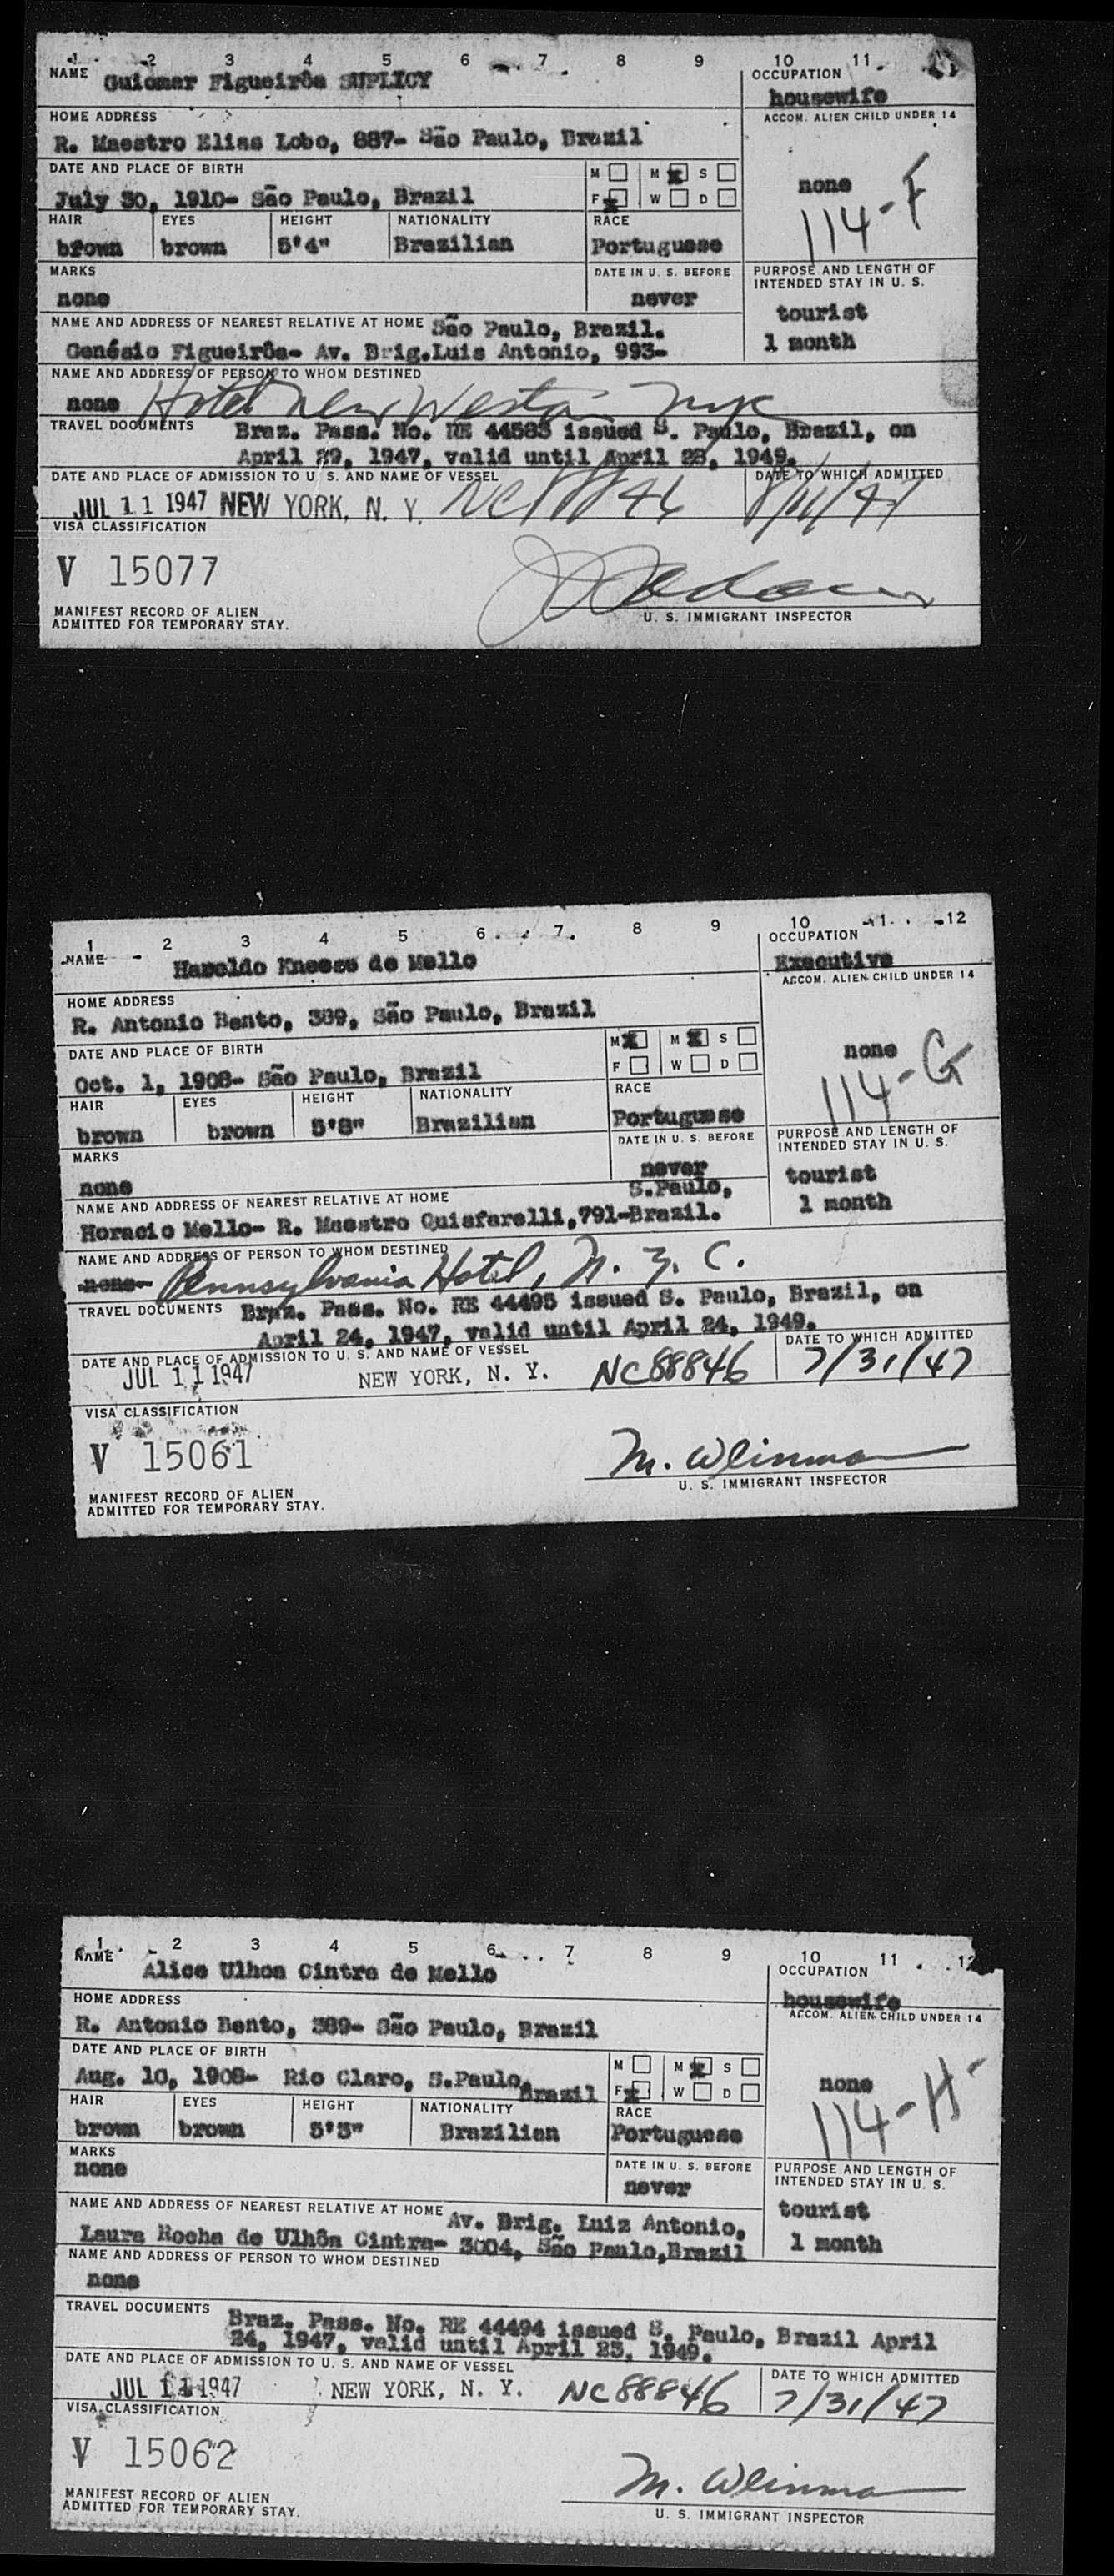 1 2 3 4 5 6 7 8 9 10 11
NAME Guiomar Figueirôa SUPLICY
OCCUPATION
housewife
HOME ADDRESS
R. Maestro Elias Lobo, 887- São Paulo, Brazil
ACCOM. ALIEN CHILD UNDER 14
none
114-F
DATE AND PLACE OF BIRTH
July 30, 1910- São Paulo, Brazil
M M x S
F x W D
HAIR EYES HEIGHT NATIONALITY RACE
brown brown 5'4" Brazilian Portuguese
MARKS DATE IN U. S. BEFORE
none never
PURPOSE AND LENGTH OF
INTENDED STAY IN U. S.
tourist
1 month
NAME AND ADDRESS OF NEAREST RELATIVE AT HOME São Paulo, Brazil.
Genésio Figueirôa- Av. Brig.Luis Antonio, 993-
NAME AND ADDRESS OF PERSON TO WHOM DESTINED
none Hotel New Weston NYC
TRAVEL DOCUMENTS Braz. Pass. No. RE 44583 issued S. Paulo, Brazil, on
April 29, 1947, valid until April 28, 1949.
DATE AND PLACE OF ADMISSION TO U. S. AND NAME OF VESSEL DATE TO WHICH ADMITTED
JUL 11 1947 NEW YORK, N. Y. NC 88846 8/11/47
VISA CLASSIFICATION
V 15077
MANIFEST RECORD OF ALIEN
ADMITTED FOR TEMPORARY STAY.
U. S. IMMIGRANT INSPECTOR
1 2 3 4 5 6 7 8 9 10 11 12
NAME Haroldo Kneese de Mello
OCCUPATION
Executive
HOME ADDRESS
R. Antonio Bento, 389, São Paulo, Brazil
ACCOM. ALIEN CHILD UNDER 14
none
114-G
DATE AND PLACE OF BIRTH
Oct. 1, 1908- São Paulo, Brazil
M x M x S
F W D
HAIR EYES HEIGHT NATIONALITY RACE
brown brown 5'8" Brazilian Portuguese
MARKS DATE IN U. S. BEFORE
none never
PURPOSE AND LENGTH OF
INTENDED STAY IN U. S.
tourist
1 month
NAME AND ADDRESS OF NEAREST RELATIVE AT HOME S.Paulo,
Horacio Mello- R. Maestro Quiafarelli,791-Brazil.
NAME AND ADDRESS OF PERSON TO WHOM DESTINED
none Pennsylvania Hotel, N. Y. C.
TRAVEL DOCUMENTS Braz. Pass. No. RE 44495 issued S. Paulo, Brazil, on
April 24, 1947, valid until April 24, 1949.
DATE AND PLACE OF ADMISSION TO U. S. AND NAME OF VESSEL DATE TO WHICH ADMITTED
JUL 11 1947 NEW YORK, N. Y. NC88846 7/31/47
VISA CLASSIFICATION
V 15061
M. Weinman
MANIFEST RECORD OF ALIEN
ADMITTED FOR TEMPORARY STAY.
U. S. IMMIGRANT INSPECTOR
1 2 3 4 5 6 7 8 9 10 11 12
NAME Alice Ulhoa Cintra de Mello
OCCUPATION
housewife
HOME ADDRESS
R. Antonio Bento, 389- São Paulo, Brazil
ACCOM. ALIEN CHILD UNDER 14
none
114-H
DATE AND PLACE OF BIRTH
Aug. 10, 1908- Rio Claro, S.Paulo, Brazil
M M x S
F x W D
HAIR EYES HEIGHT NATIONALITY RACE
brown brown 5'3" Brazilian Portuguese
MARKS DATE IN U. S. BEFORE
none never
PURPOSE AND LENGTH OF
INTENDED STAY IN U. S.
tourist
1 month
NAME AND ADDRESS OF NEAREST RELATIVE AT HOME Av. Brig. Luiz Antonio,
Laura Rocha de Ulhôa Cintra- 3004, São Paulo,Brazil
NAME AND ADDRESS OF PERSON TO WHOM DESTINED
none
TRAVEL DOCUMENTS Braz. Pass. No. RE 44494 issued S. Paulo, Brazil April
24, 1947, valid until April 23, 1949.
DATE AND PLACE OF ADMISSION TO U. S. AND NAME OF VESSEL DATE TO WHICH ADMITTED
JUL 11 1947 NEW YORK, N. Y. NC 88846 7/31/47
VISA CLASSIFICATION
V 15062
M. Weinman
MANIFEST RECORD OF ALIEN
ADMITTED FOR TEMPORARY STAY.
U. S. IMMIGRANT INSPECTOR